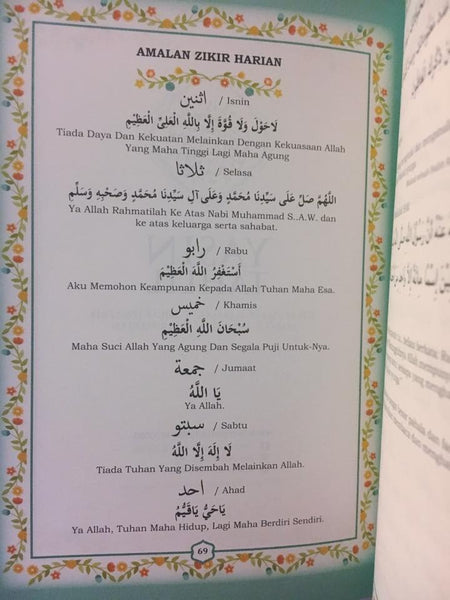 AMALAN ZIKIR HARIAN
اثنين / Isnin
لَاحَوْلَ وَلَا قُوَّةَ إِلَّا بِاللَّهِ الْعَلِيِّ الْعَظِيْمِ
Tiada Daya Dan Kekuatan Melainkan Dengan Kekuasaan Allah
Yang Maha Tinggi Lagi Maha Agung
ثلاثا / Selasa
اللَّهُمَّ صَلِّ عَلَى سَيِّدِنَا مُحَمَّدٍ وَعَلَى آلِ سَيِّدِنَا مُحَمَّدٍ وَصَحْبِهِ وَسَلِّمِ
Ya Allah Rahmatilah Ke Atas Nabi Muhammad S..A.W. dan
ke atas keluarga serta sahabat.
رابو / Rabu
أَسْتَغْفِرُ اللَّهَ الْعَظِيْمَ
Aku Memohon Keampunan Kepada Allah Tuhan Maha Esa.
خميس / Khamis
سُبْحَانَ اللَّهِ الْعَظِيْمِ
Maha Suci Allah Yang Agung Dan Segala Puji Untuk-Nya.
جمعة / Jumaat
يَا اللَّهُ
Ya Allah.
سبتو / Sabtu
لَا إِلَهَ إِلَّا اللَّهُ
Tiada Tuhan Yang Disembah Melainkan Allah.
احد / Ahad
يَاحَيُّ يَاقَيُّمُ
Ya Allah, Tuhan Maha Hidup, Lagi Maha Berdiri Sendiri.
69